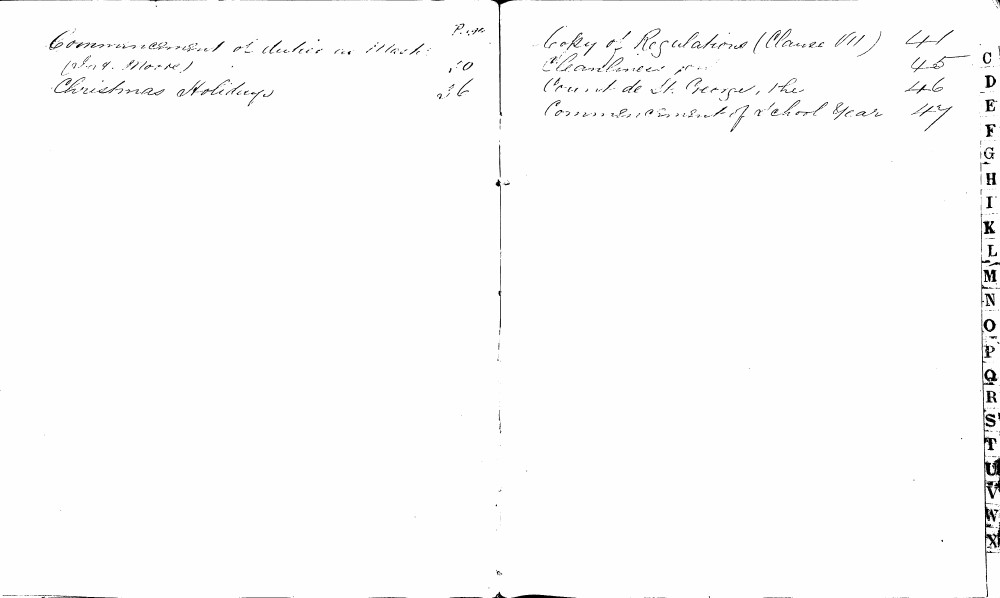 Page
Commencement of duties as
Moore)
Christmas Holidays
Copy of Regulations (Clause VII) 41
Cleanliness 45
Count de St. George, the 46
Commencement of School Year 47
C
D
E
F
G
H
I
K
L
M
N
O
P
Q
R
S
T
U
V
W
X